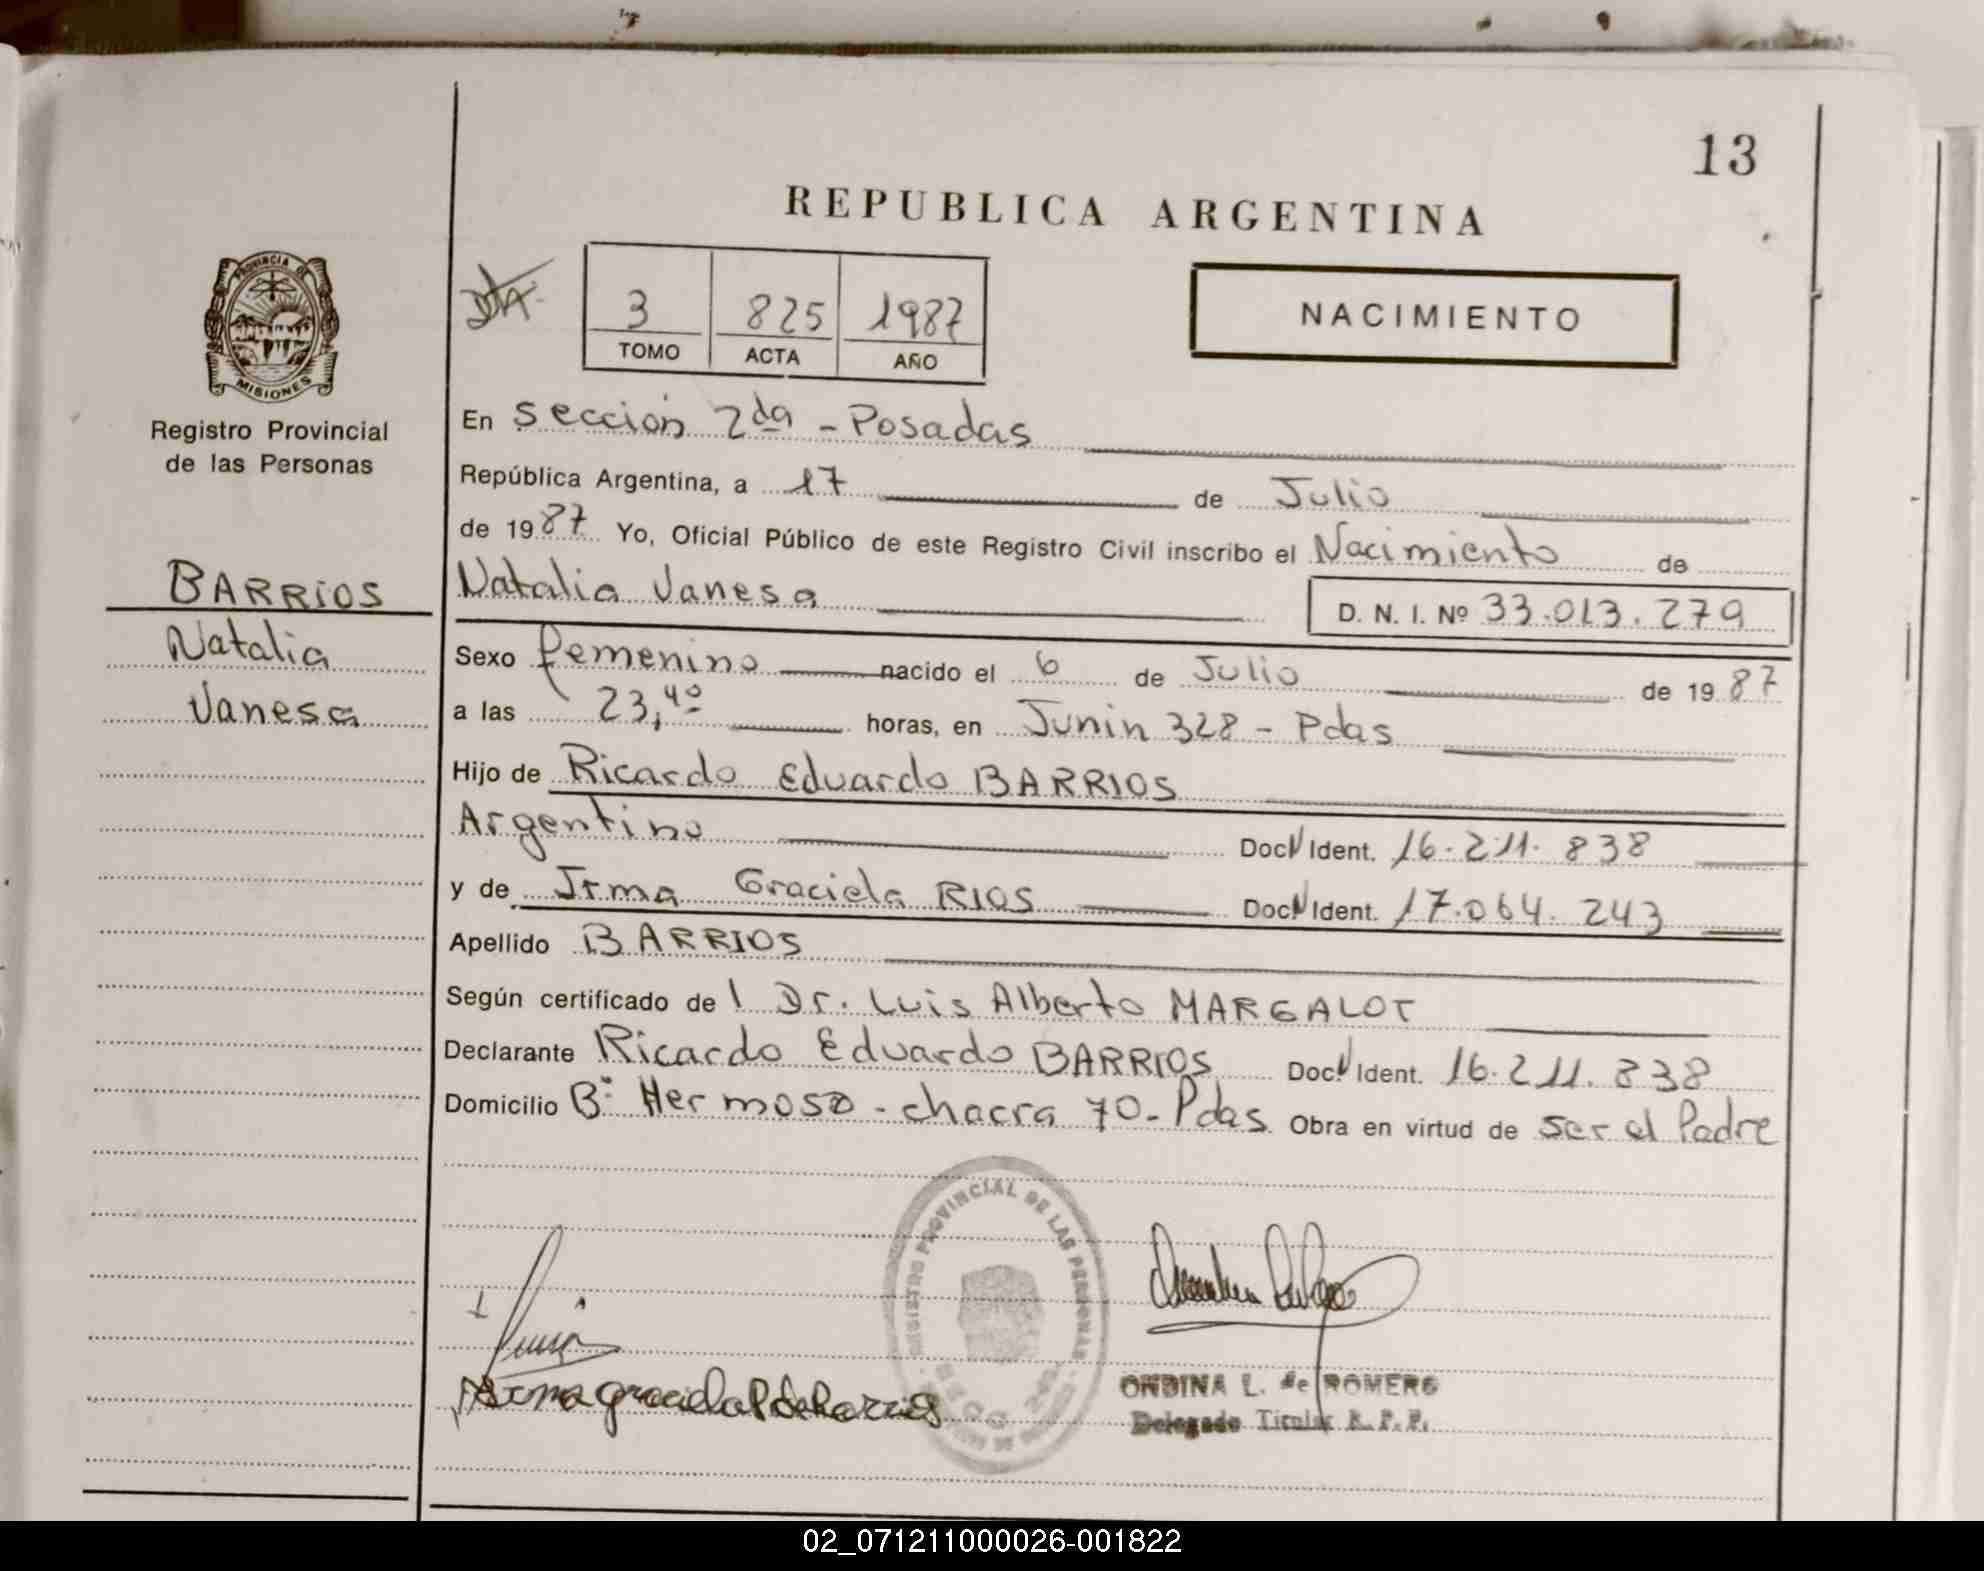 13
REPUBLICA ARGENTINA
PROVINCIA DE
MISIONES
Registro Provincial
de las Personas
3 825 1987
TOMO ACTA AÑO
NACIMIENTO
En Sección 2da - Posadas
República Argentina, a 17 de Julio
de 1987 Yo, Oficial Público de este Registro Civil inscribo el Nacimiento de
BARRIOS
Natalia
Vanesa
Natalia Vanesa D. N. I. Nº 33.013.279
Sexo femenino nacido el 6 de Julio de 1987
a las 23,40 horas, en Junin 328 - Pdas
Hijo de Ricardo Eduardo BARRIOS
Argentino Doc. Ident. 16.211.838
y de Irma Graciela RIOS Doc. Ident. 17.064.243
Apellido BARRIOS
Según certificado del Dr. Luis Alberto MARGALOT
Declarante Ricardo Eduardo BARRIOS Doc. Ident. 16.211.838
Domicilio Bº Hermoso - chacra 70 - Pdas Obra en virtud de ser el Padre
REGISTRO PROVINCIAL DE LAS PERSONAS
Irma Graciela R de Barrios
ONDINA L. de ROMERO
Delegado Titular R. P. P.
02_071211000026-001822